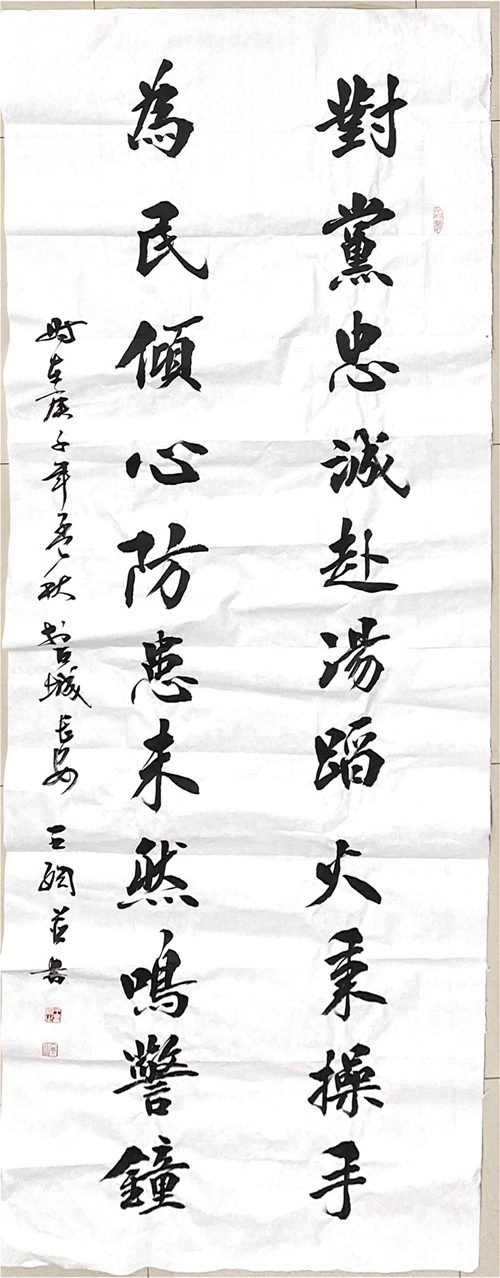 對黨忠誠赴湯蹈火秉操手
為民傾心防患未然鳴警鐘
時在庚子年孟秋書古城長安 王 書